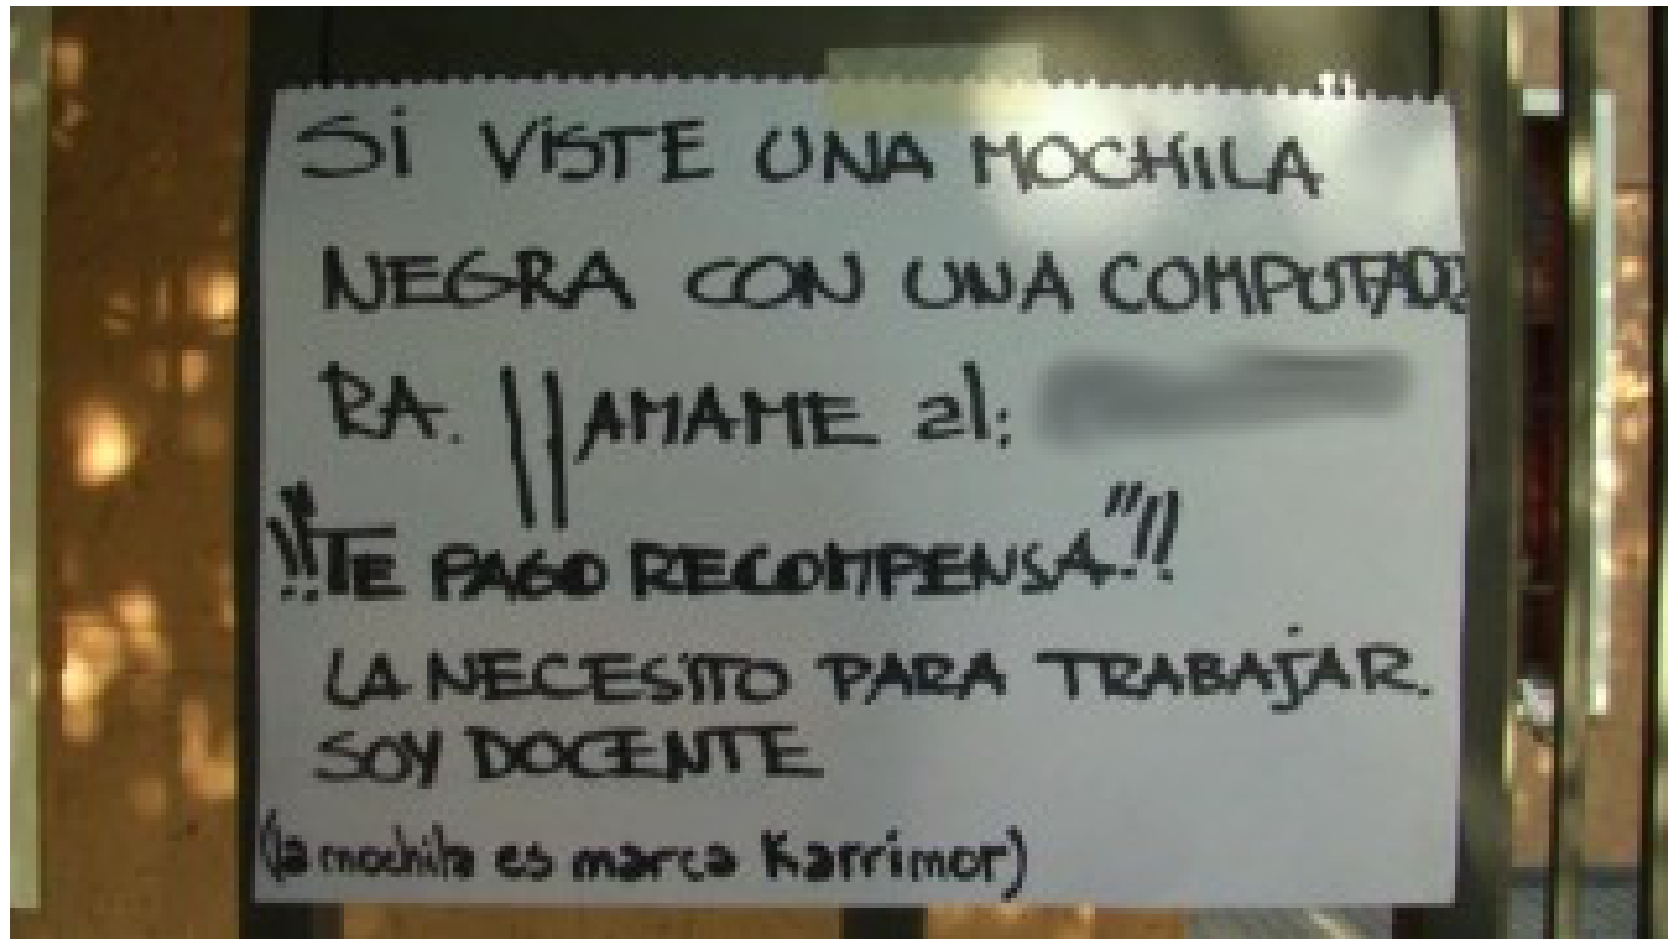 Si ViSTE UNA MOCHiLA
NEGRA CON UNA COMPUTADO
RA. llAMAME al:
!!"TE PAGO RECOMPENSA"!!
LA NECESiTO PARA TRABAjAR.
SOY DOCENTE
(la mochila es marca Karrimor)